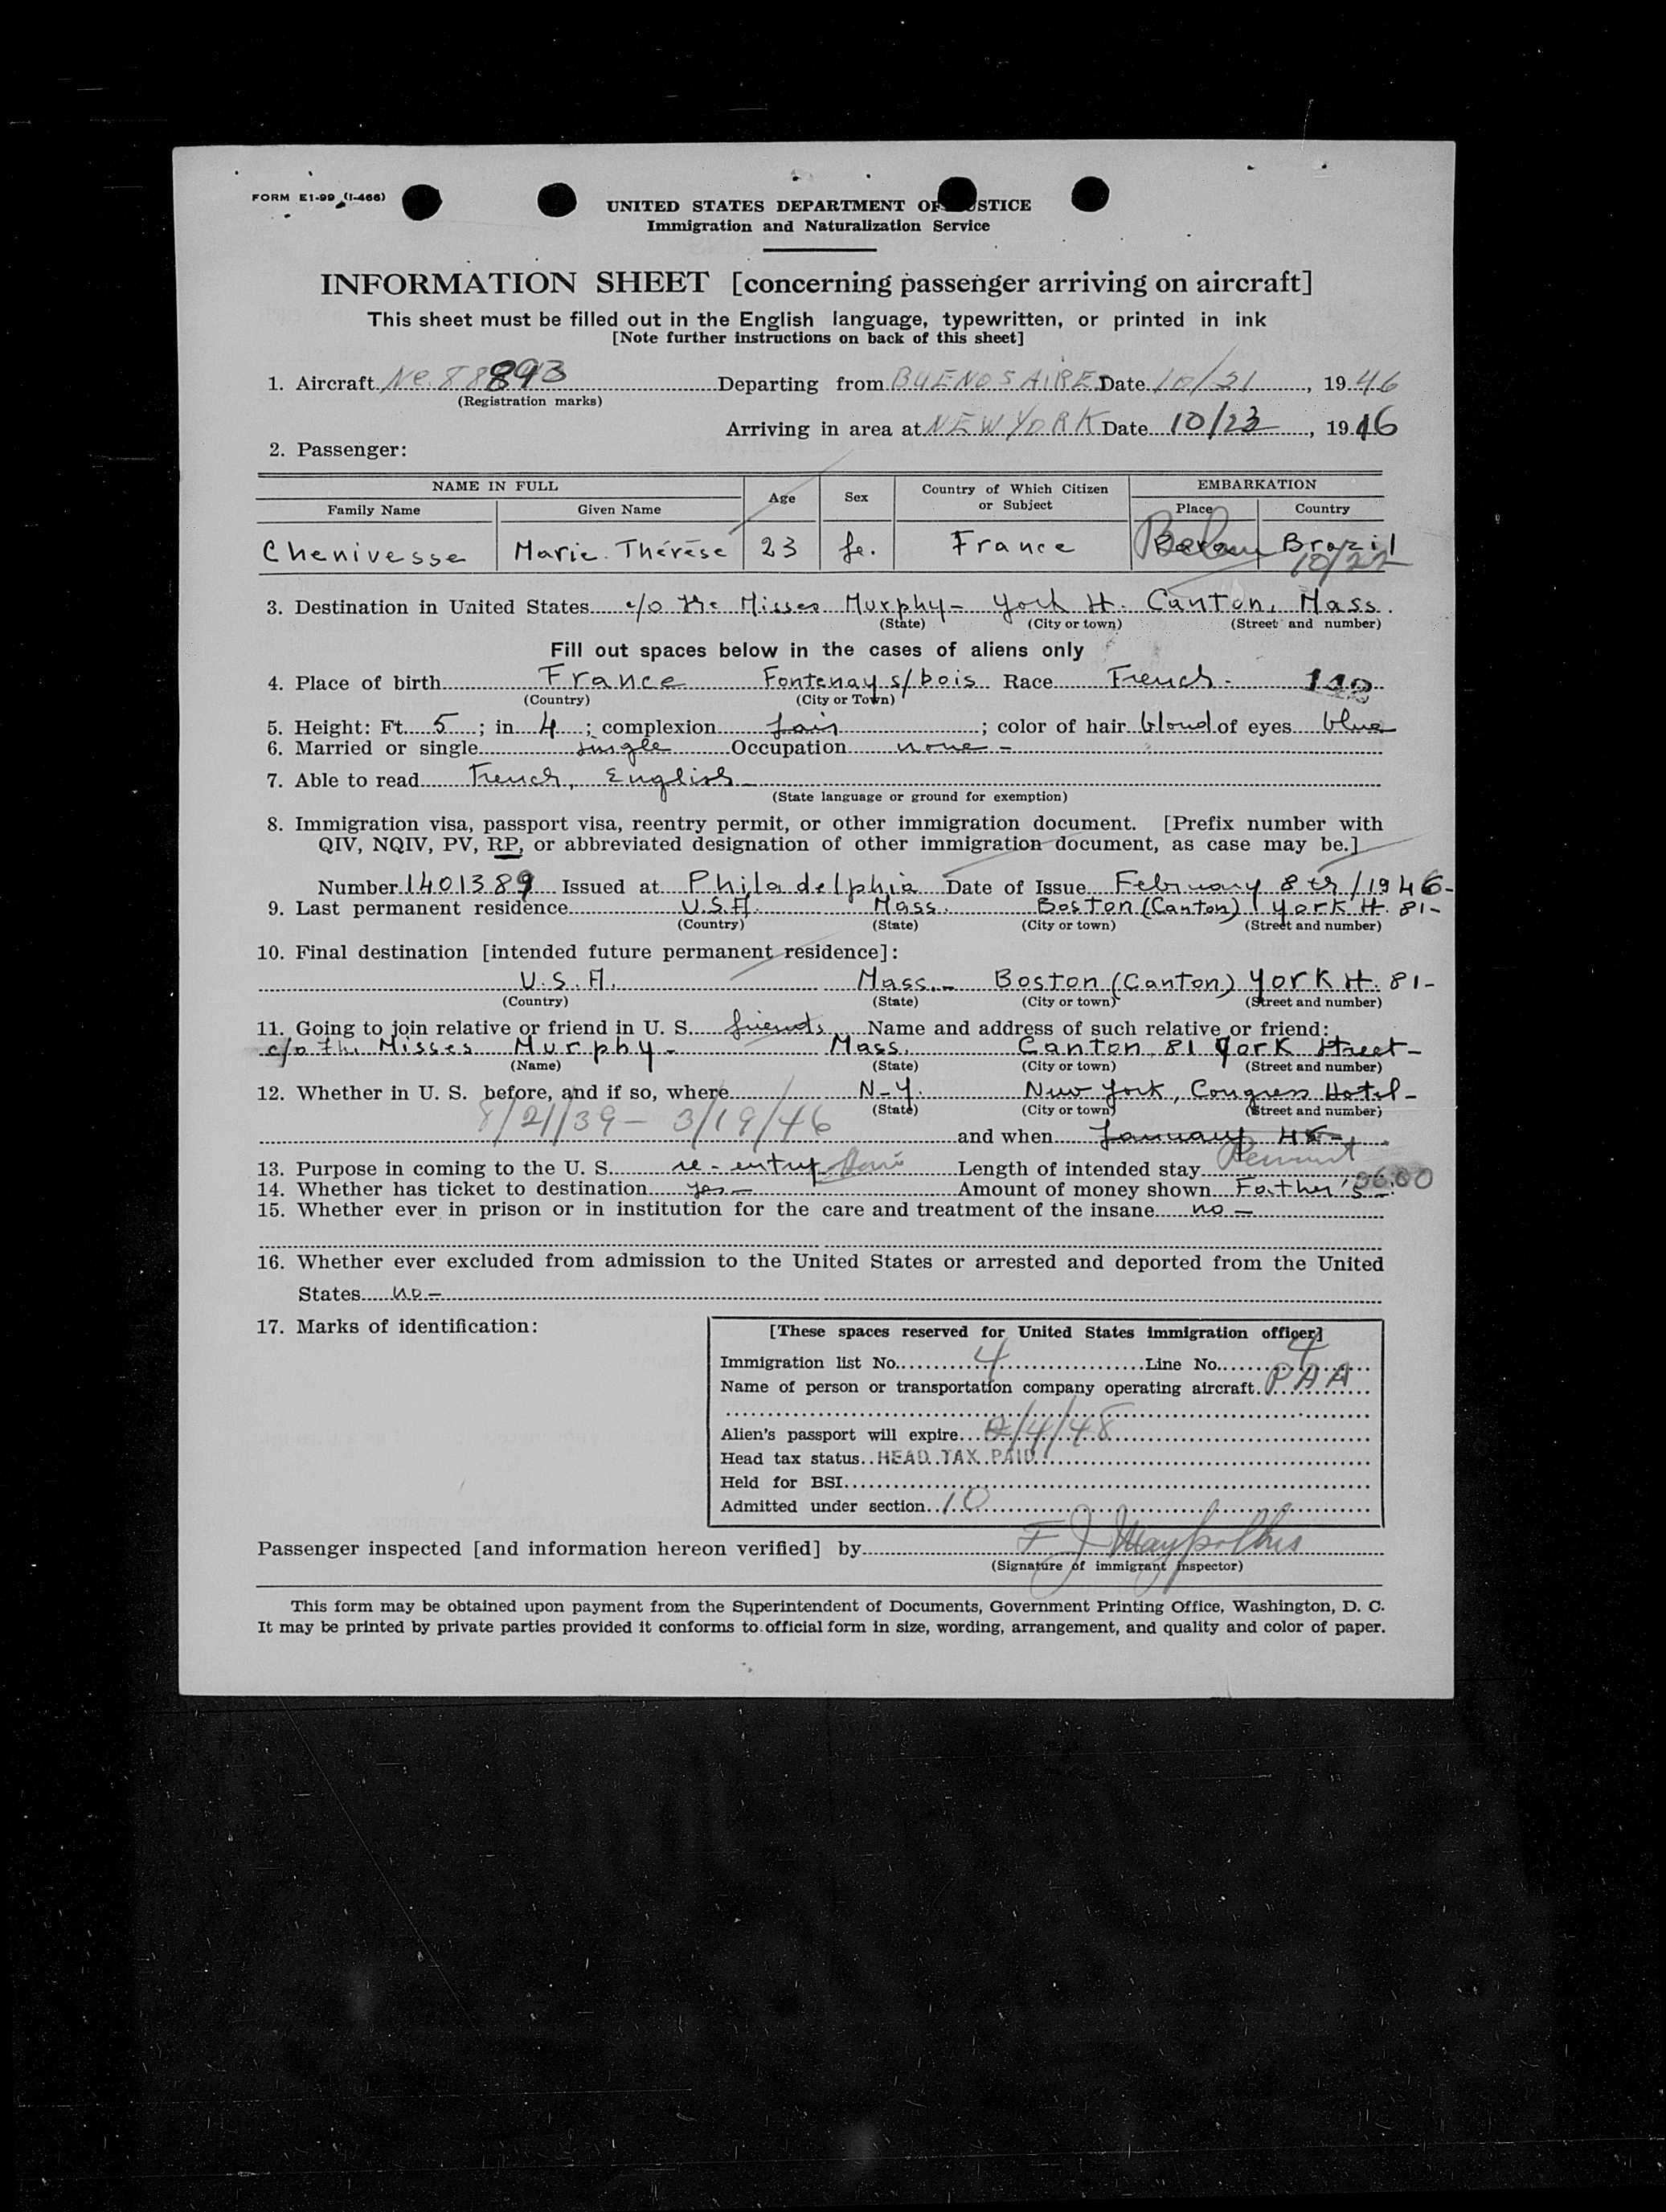 FORM E1-99 (I-466)
UNITED STATES DEPARTMENT OF JUSTICE
Immigration and Naturalization Service
INFORMATION SHEET [concerning passenger arriving on aircraft]
This sheet must be filled out in the English language, typewritten, or printed in ink
[Note further instructions on back of this sheet]
1. Aircraft Nc. 88893 Departing from BUENOS AIRES Date 10/21, 1946
(Registration marks)
Arriving in area at NEW YORK Date 10/23, 1946
2. Passenger:
NAME IN FULL Age Sex Country of Which Citizen or Subject EMBARKATION
Family Name Given Name Place Country
Chenivesse Marie-Thérèse 23 fe. France Belem Brazil
10/22
3. Destination in United States c/o the Misses Murphy - York St. Canton, Mass.
(State) (City or town) (Street and number)
Fill out spaces below in the cases of aliens only
4. Place of birth France Fontenay s/bois Race French -
(Country) (City or Town)
5. Height: Ft. 5; in 4; complexion fair; color of hair blond of eyes blue
6. Married or single single Occupation none -
7. Able to read French, English
(State language or ground for exemption)
8. Immigration visa, passport visa, reentry permit, or other immigration document. [Prefix number with
QIV, NQIV, PV, RP, or abbreviated designation of other immigration document, as case may be.]
Number 1401389 Issued at Philadelphia Date of Issue February 8th/1946-
9. Last permanent residence U.S.A. Mass. Boston (Canton) York St. 81-
(Country) (State) (City or town) (Street and number)
10. Final destination [intended future permanent residence]:
U.S.A. Mass.- Boston (Canton) York St. 81-
(Country) (State) (City or town) (Street and number)
11. Going to join relative or friend in U. S. friends Name and address of such relative or friend:
c/o the Misses Murphy - Mass. Canton, 81 York Street-
(Name) (State) (City or town) (Street and number)
12. Whether in U. S. before, and if so, where N-Y. New York, Congress Hotel-
(State) (City or town) (Street and number)
8/21/39 - 3/19/46 and when January
13. Purpose in coming to the U. S. re-entry Length of intended stay Permint
14. Whether has ticket to destination yes - Amount of money shown Father's
15. Whether ever in prison or in institution for the care and treatment of the insane no -
16. Whether ever excluded from admission to the United States or arrested and deported from the United
States no -
17. Marks of identification:
[These spaces reserved for United States immigration officer]
Immigration list No. 4 Line No. 4
Name of person or transportation company operating aircraft. PAA
Alien's passport will expire 2/4/48
Head tax status HEAD TAX PAID
Held for BSI
Admitted under section 10
Passenger inspected [and information hereon verified] by F J
(Signature of immigrant inspector)
This form may be obtained upon payment from the Superintendent of Documents, Government Printing Office, Washington, D. C.
It may be printed by private parties provided it conforms to official form in size, wording, arrangement, and quality and color of paper.